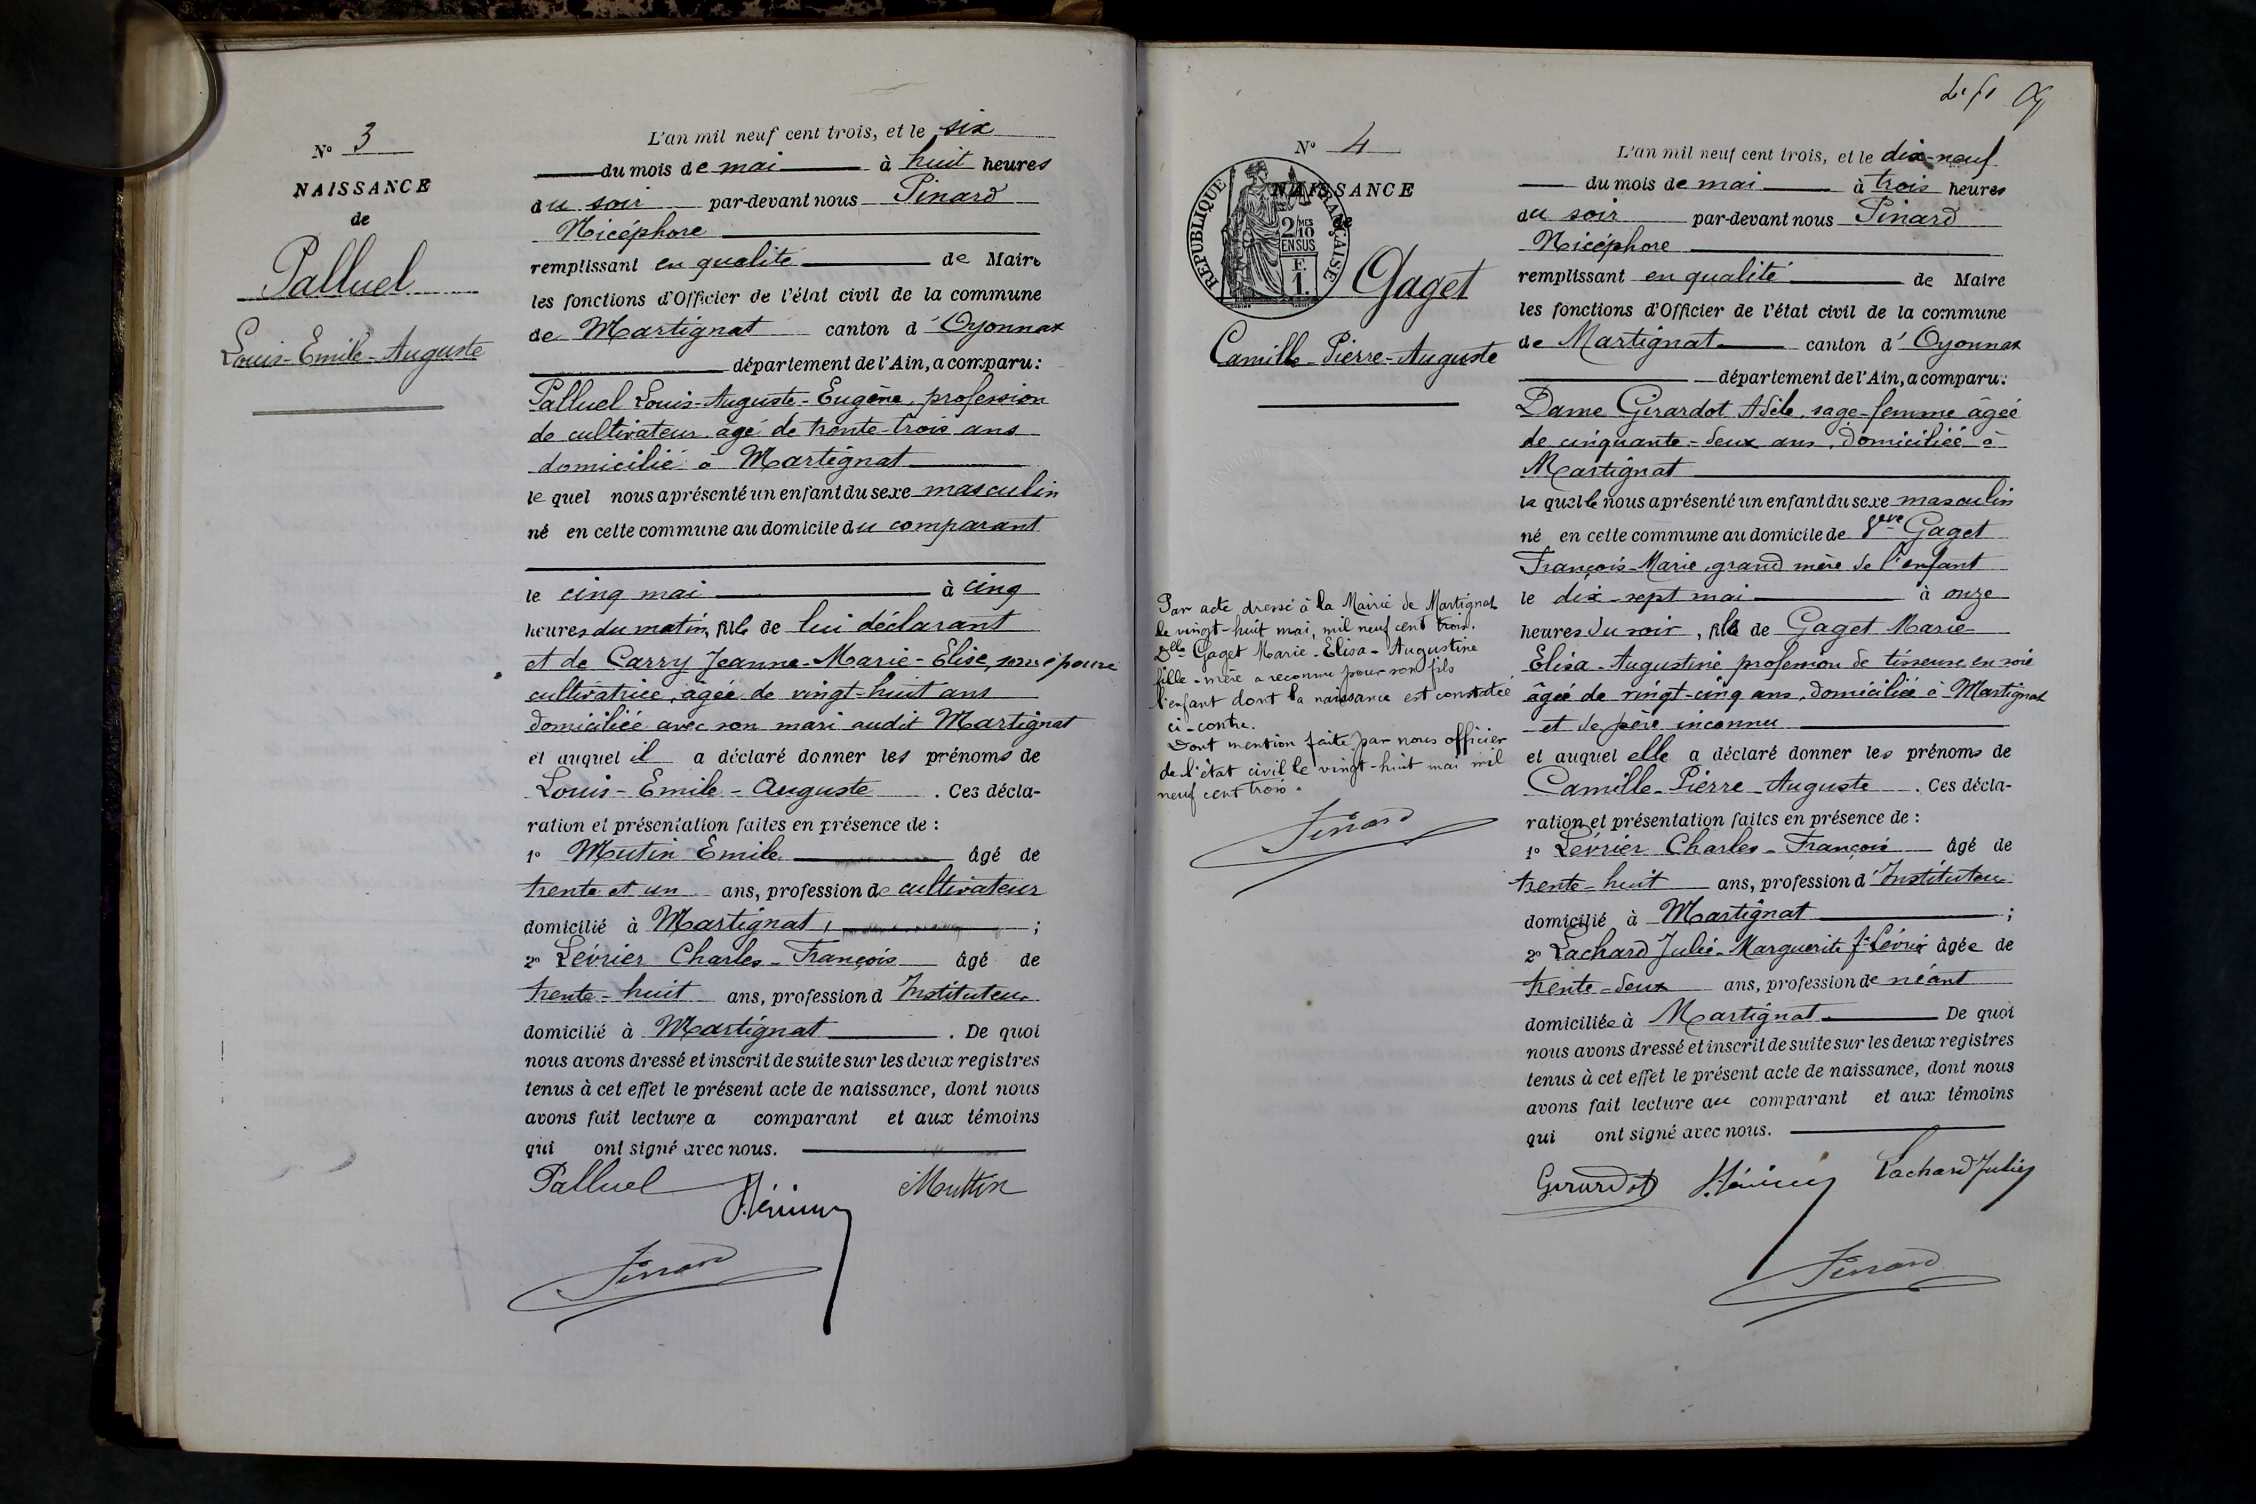 N° 3
NAISSANCE
de
Palluel
Louis-Emile-Auguste
L'an mil neuf cent trois, et le six
du mois de mai à huit heures
du soir par-devant nous Pinard
Nicéphore
remplissant en qualité de Maire
les fonctions d'Officier de l'état civil de la commune
de Martignat canton d'Oyonnax
département de l'Ain, a comparu:
Palluel Louis-Auguste-Eugène, profession
de cultivateur âgé de trente-trois ans
domicilié à Martignat
le quel nous a présenté un enfant du sexe masculin
né en cette commune au domicile du comparant
le cinq mai à cinq
heures du matin, fils de lui déclarant
et de Carry Jeanne-Marie-Elise, son épouse
cultivatrice, âgée de vingt-huit ans
domiciliée avec son mari audit Martignat
et auquel il a déclaré donner les prénoms de
Louis-Emile-Auguste. Ces décla-
ration et présentation faites en présence de :
1° Mutin Emile âgé de
trente et un ans, profession de cultivateur
domicilié à Martignat, ;
2° Lévrier Charles-François âgé de
trente-huit ans, profession d Instituteur
domicilié à Martignat. De quoi
nous avons dressé et inscrit de suite sur les deux registres
tenus à cet effet le présent acte de naissance, dont nous
avons fait lecture a comparant et aux témoins
qui ont signé avec nous.
Palluel Lévrier Muttin
Pinard
N° 4
NAISSANCE
de
REPUBLIQUE FRANÇAISE
2/10 MES
EN SUS
F.
1.
Gaget
Camille-Pierre-Auguste
Par acte dressé à la Mairie de Martignat
le vingt-huit mai, mil neuf cent trois.
Dlle Gaget Marie-Elisa-Augustine
fille-mère a reconnu pour son fils
l'enfant dont la naissance est constatée
ci-contre.
Dont mention faite par nous officier
de l'état civil le vingt-huit mai mil
neuf cent trois.
Pinard
L'an mil neuf cent trois, et le dix-neuf
du mois de mai à trois heures
du soir par-devant nous Pinard
Nicéphore
remplissant en qualité de Maire
les fonctions d'Officier de l'état civil de la commune
de Martignat canton d'Oyonnax
département de l'Ain, a comparu:
Dame Girardot Adèle, sage-femme âgée
de cinquante-deux ans, domiciliée à
Martignat
la quelle nous a présenté un enfant du sexe masculin
né en cette commune au domicile de Veuve Gaget
François-Marie, grand mère de l'enfant
le dix-sept mai à onze
heures du soir, fils de Gaget Marie-
Elisa-Augustine profession de tisseuse en soie
âgée de vingt-cinq ans, domiciliée à Martignat
et de père inconnu
et auquel elle a déclaré donner les prénoms de
Camille-Pierre-Auguste. Ces décla-
ration et présentation faites en présence de :
1° Lévrier Charles-François âgé de
trente-huit ans, profession d'Instituteur
domicilié à Martignat ;
2° Lachard Julie-Marguerite fe Lévrier âgée de
trente-deux ans, profession de néant
domiciliée à Martignat De quoi
nous avons dressé et inscrit de suite sur les deux registres
tenus à cet effet le présent acte de naissance, dont nous
avons fait lecture au comparant et aux témoins
qui ont signé avec nous.
Girardot Lévrier Lachard Julie
Pinard